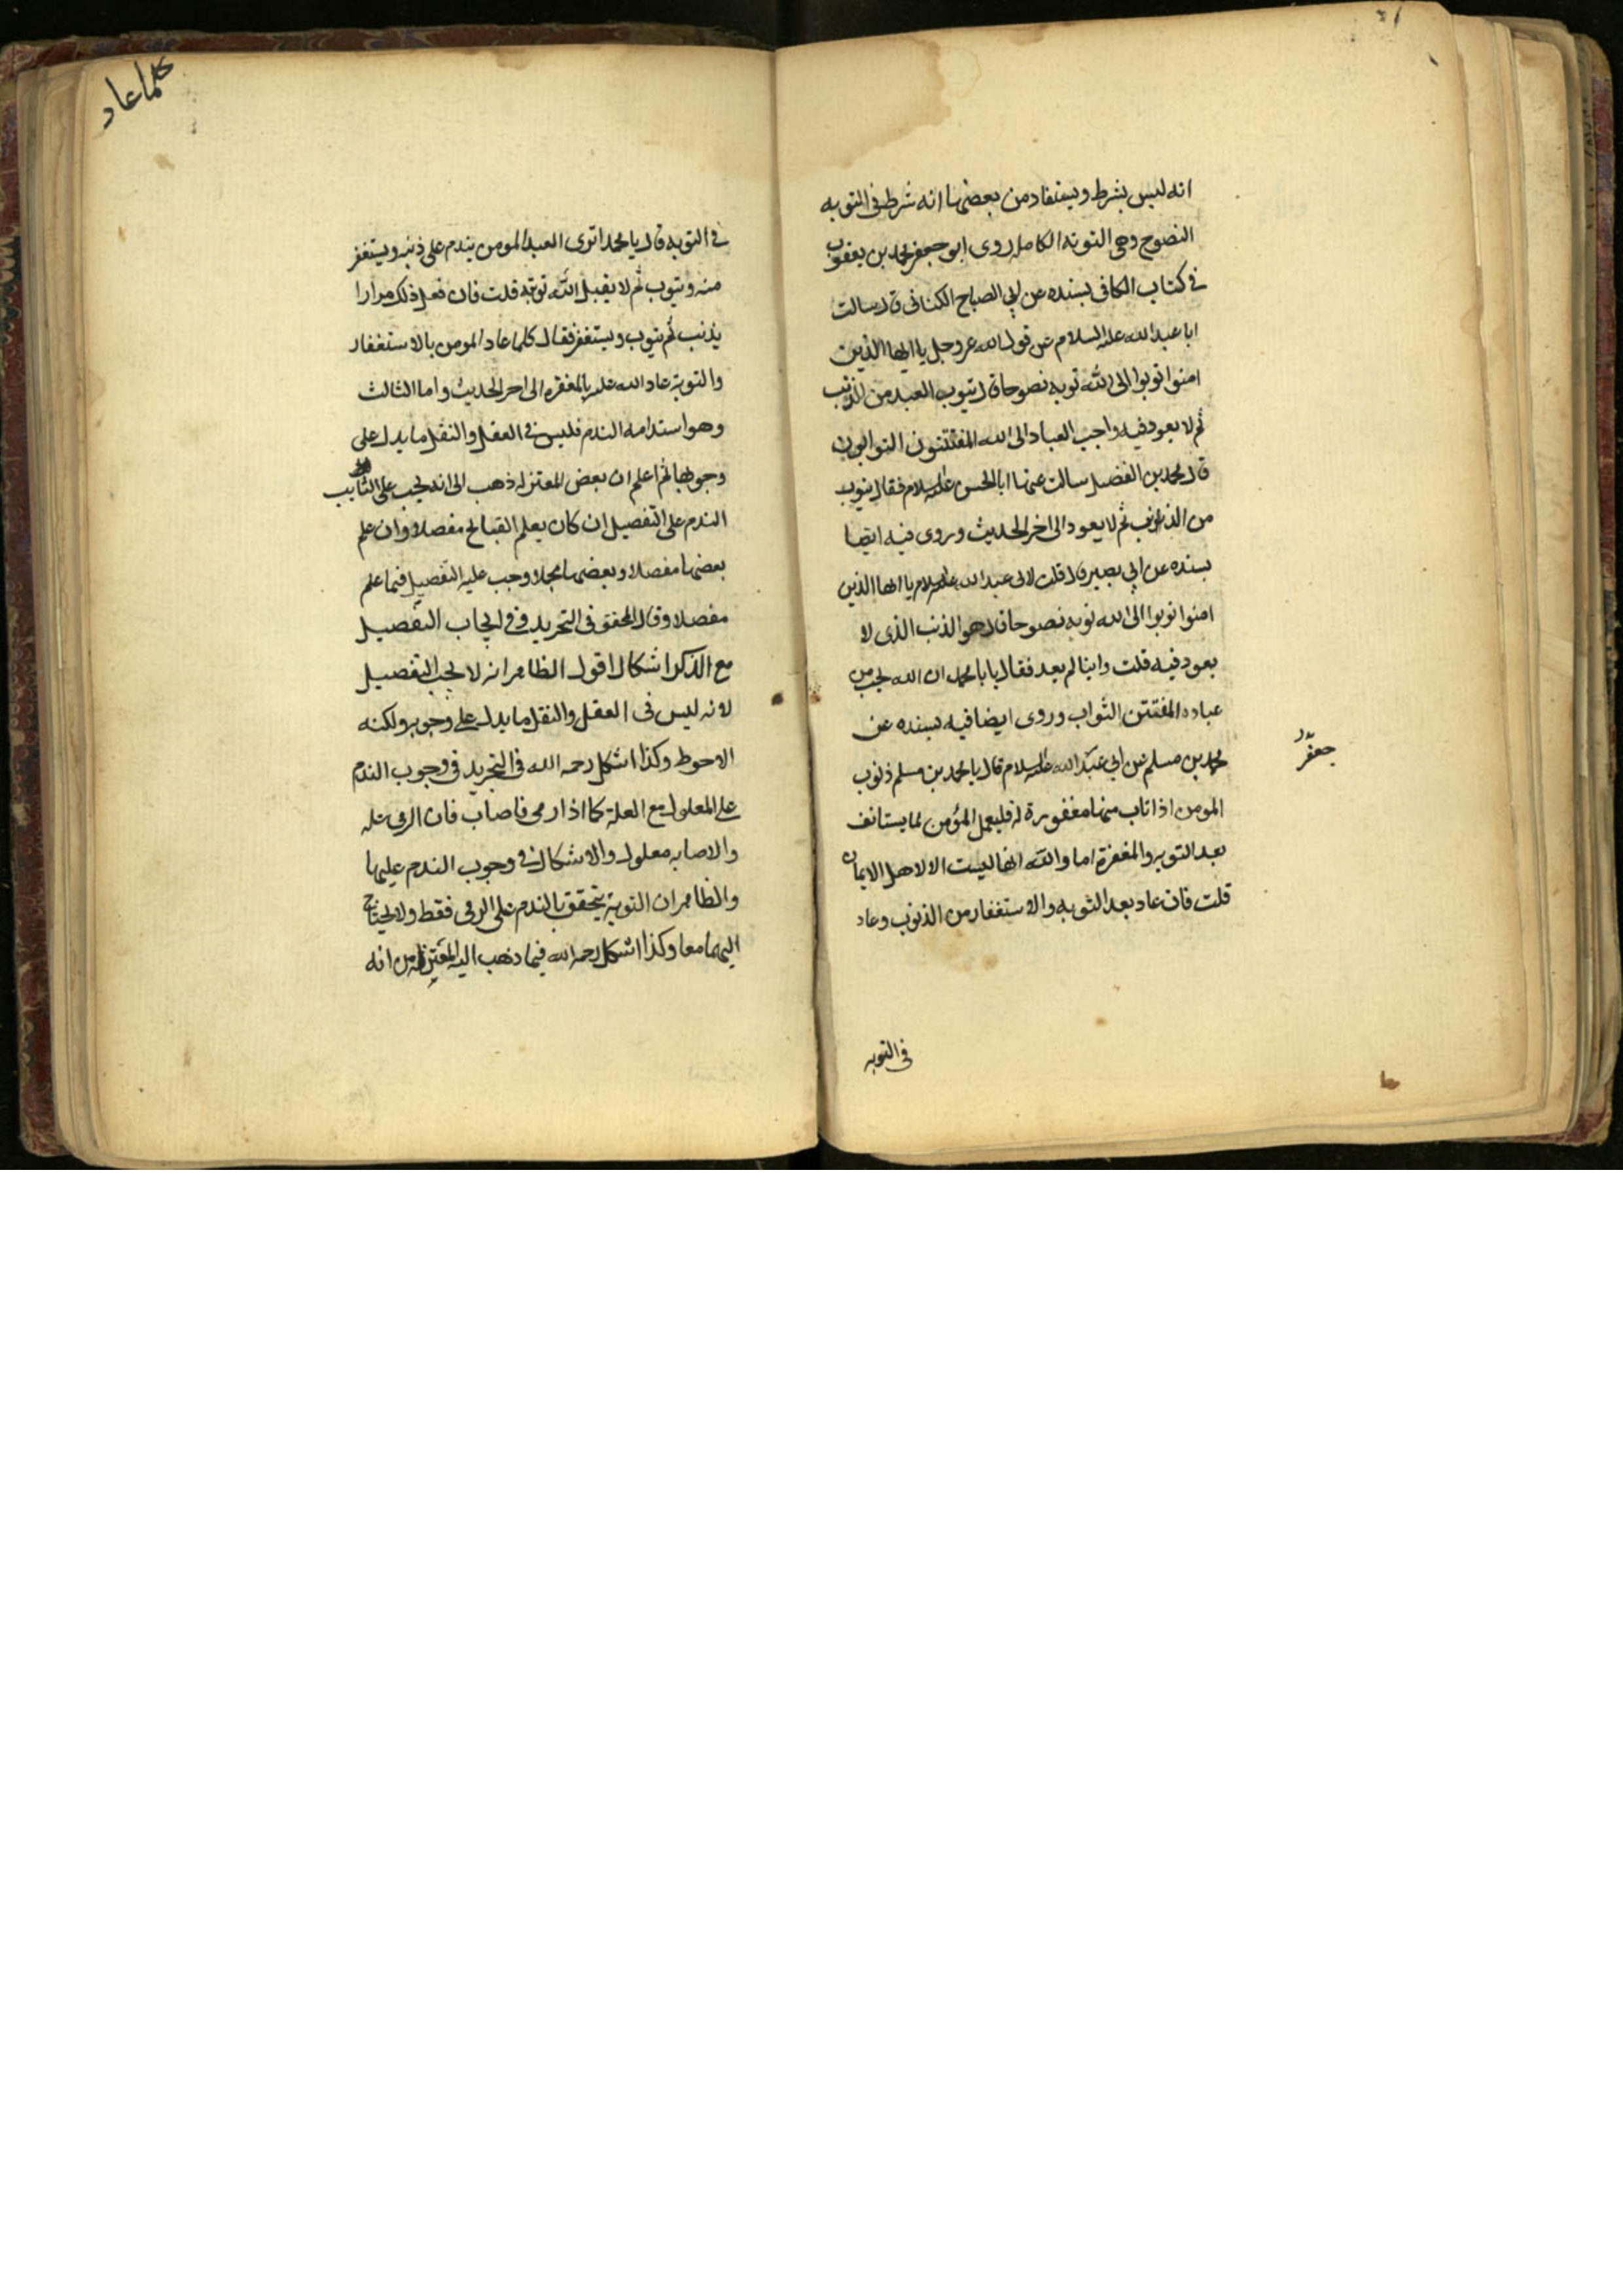 انه ليس بشرط ويستفاد من بعضها انه شرط في التوبه
النصوح وهى التوبه الكامله روى ابو جعفر محمد بن يعقوب
في كتاب الكافى بسنده عن ابي الصباح الكنانى قال سالت
ابا عبد الله عليه السلام عن قول الله عز وجل يا ايها الذين
امنوا توبوا الى الله توبه نصوحا قال يتوب العبد من الذنب
ثم لا يعود فيه واجب العباد الى الله المفتتنون التوابون
قال محمد بن الفضيل سالت عنها ابا الحسن عليه السلام فقال يتوب
من الذنب ثم لا يعود الى اخر الحديث وروى فيه ايضا
بسنده عن ابي بصير قال قلت لابى عبد الله عليه السلام يا ايها الذين
امنوا توبوا الى الله توبه نصوحا قال هو الذنب الذى لا
يعود فيه قلت واينا لم يعد فقال يا با محمد ان الله يحب من
عباده المفتتن التواب وروى ايضا فيه بسنده عن
محمد بن مسلم عن ابي عبد الله عليه السلام قال يا محمد بن مسلم ذنوب
جعفر
المومن اذا تاب منها مغفورة له فليعمل المؤمن لما يستانف
بعد التوبه والمغفرة اما والله انها ليست الا لاهل الايمان
قلت فان عاد بعد التوبه والاستغفار من الذنوب وعاد
في التوبه
كلما عاد
في التوبه قال يا محمد اترى العبد المومن يندم على ذنبه ويستغفر
منه ويتوب ثم لا يقبل الله توبته قلت فان فعل ذلك مرارا
يذنب ثم يتوب ويستغفر فقال كلما عاد المومن بالاستغفار
والتوبة عاد الله عليه بالمغفره الى اخر الحديث واما الثالث
وهو استدامه الندم فليس في العقل والنقل ما يدل على
وجوبها ثم اعلم ان بعض المعتزله ذهب الى انه يجب على التايب
الندم على التفصيل ان كان يعلم القبائح مفصلا وان علم
بعضها مفصلا وبعضها مجملا وجب عليه التفصيل فيما علم
مفصلا وقال المحقق فى التجريد وفي ايجاب التفصيل
مع الذكر اشكال اقول الظاهر انه لا يجب التفصيل
لانه ليس فى العقل والنقل ما يدل على وجوبه ولكنه
الاحوط وكذا اشكل رحمه الله في التجريد فى وجوب الندم
على المعلول مع العلة كما اذا رمى فاصاب فان الرمى علة
والاصابه معلول والاشكال في وجوب الندم عليهما
والظاهر ان التوبة يتحقق بالندم على الرمى فقط ولا يحتاج
اليهما معا وكذا اشكل رحمه الله فيما ذهب اليه المعتزله من انه